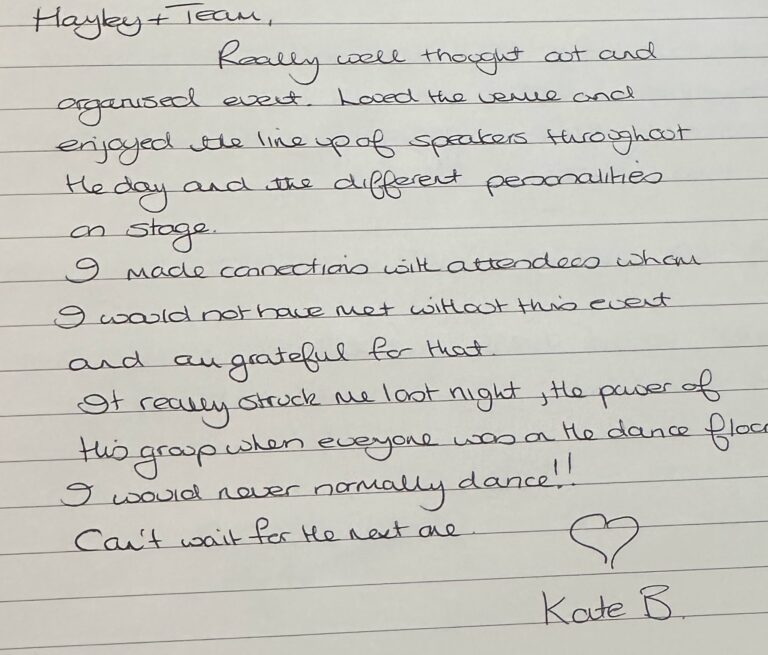 Hayley + Team,
Really well thought out and
organised event. Loved the venue and
enjoyed the line up of speakers throughout
the day and the different personalities
on stage.
I made connections with attendees whom
I would not have met without this event
and am grateful for that.
It really struck me last night, the power of
this group when everyone was on the dance floor
I would never normally dance!!
Can't wait for the next one.
Kate B.